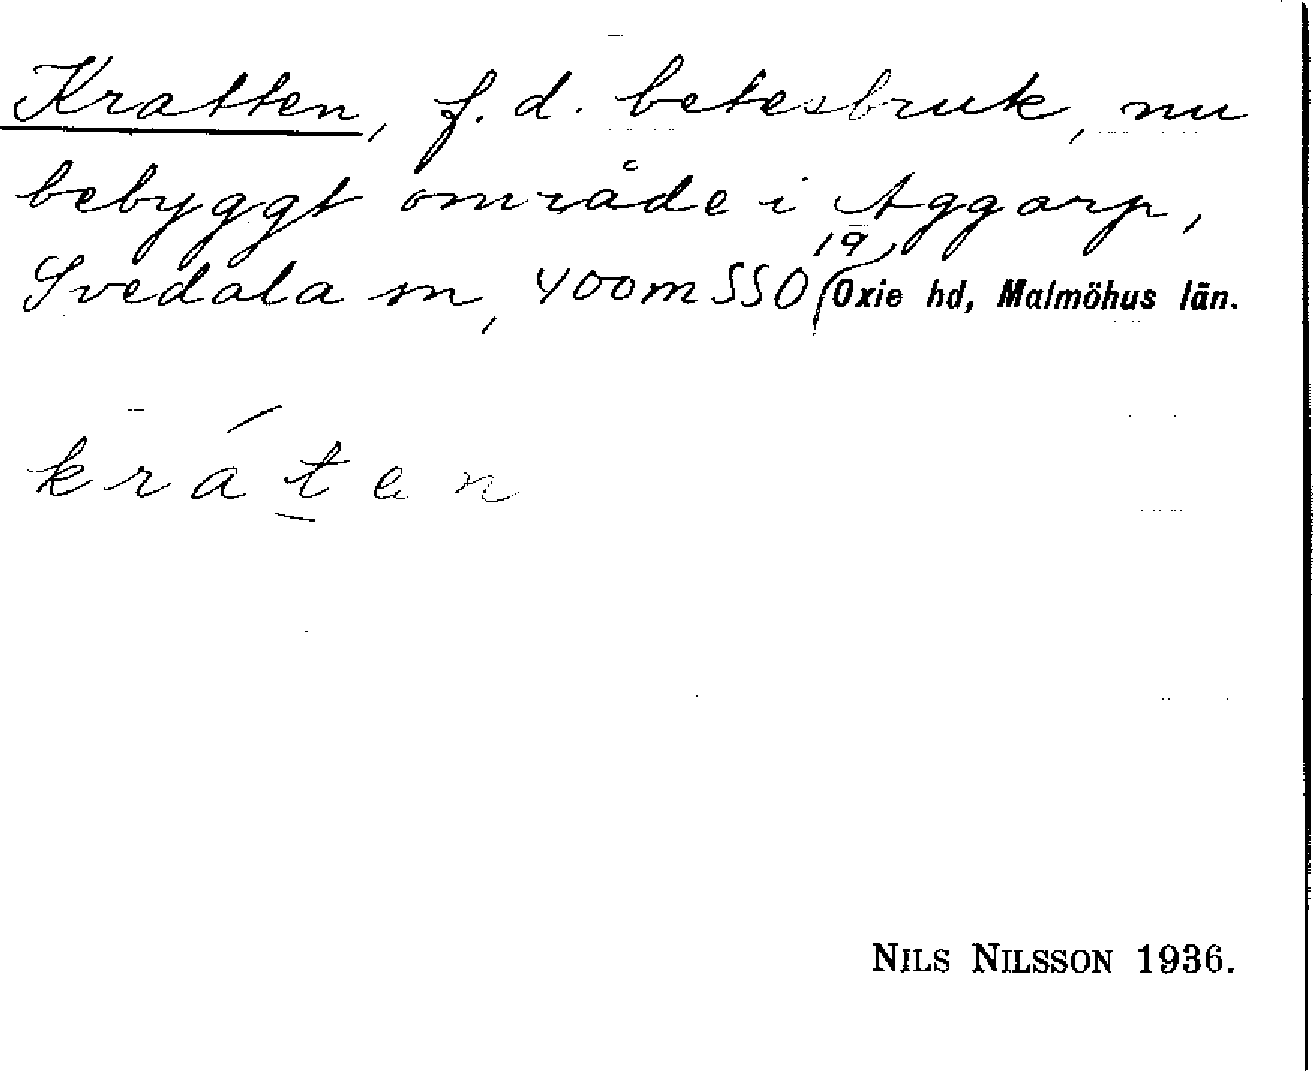 Kratten, f. d. betesbruk, nu
bebyggt område i Aggarp,
Svedala sn, 400 m SSO 19, Oxie hd, Malmöhus län.
kráten
NILS NILSSON 1936.